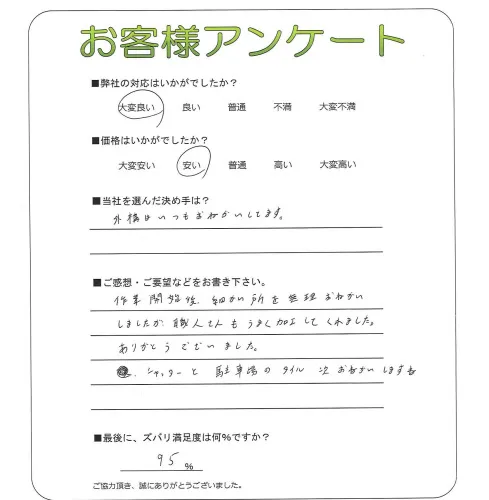 お客様アンケート
■弊社の対応はいかがでしたか？
大変良い 良い 普通 不満 大変不満
■価格はいかがでしたか？
大変安い 安い 普通 高い 大変高い
■当社を選んだ決め手は？
外構はいつもおねがいしてます。
■ご感想・ご要望などをお書き下さい。
作業開始後、細かい所を無理おねがい
しましたが職人さんもうまく加工してくれました。
ありがとうございました。
シャッターと駐車場のタイル次おねがいします
■最後に、ズバリ満足度は何％ですか？
95 %
ご協力頂き、誠にありがとうございました。